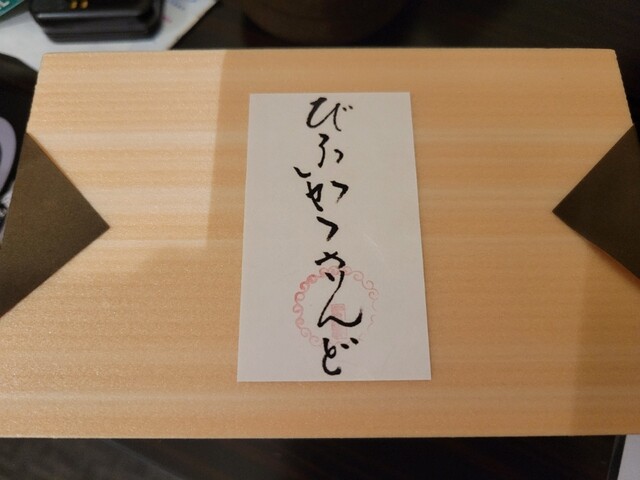 びふかつさんど